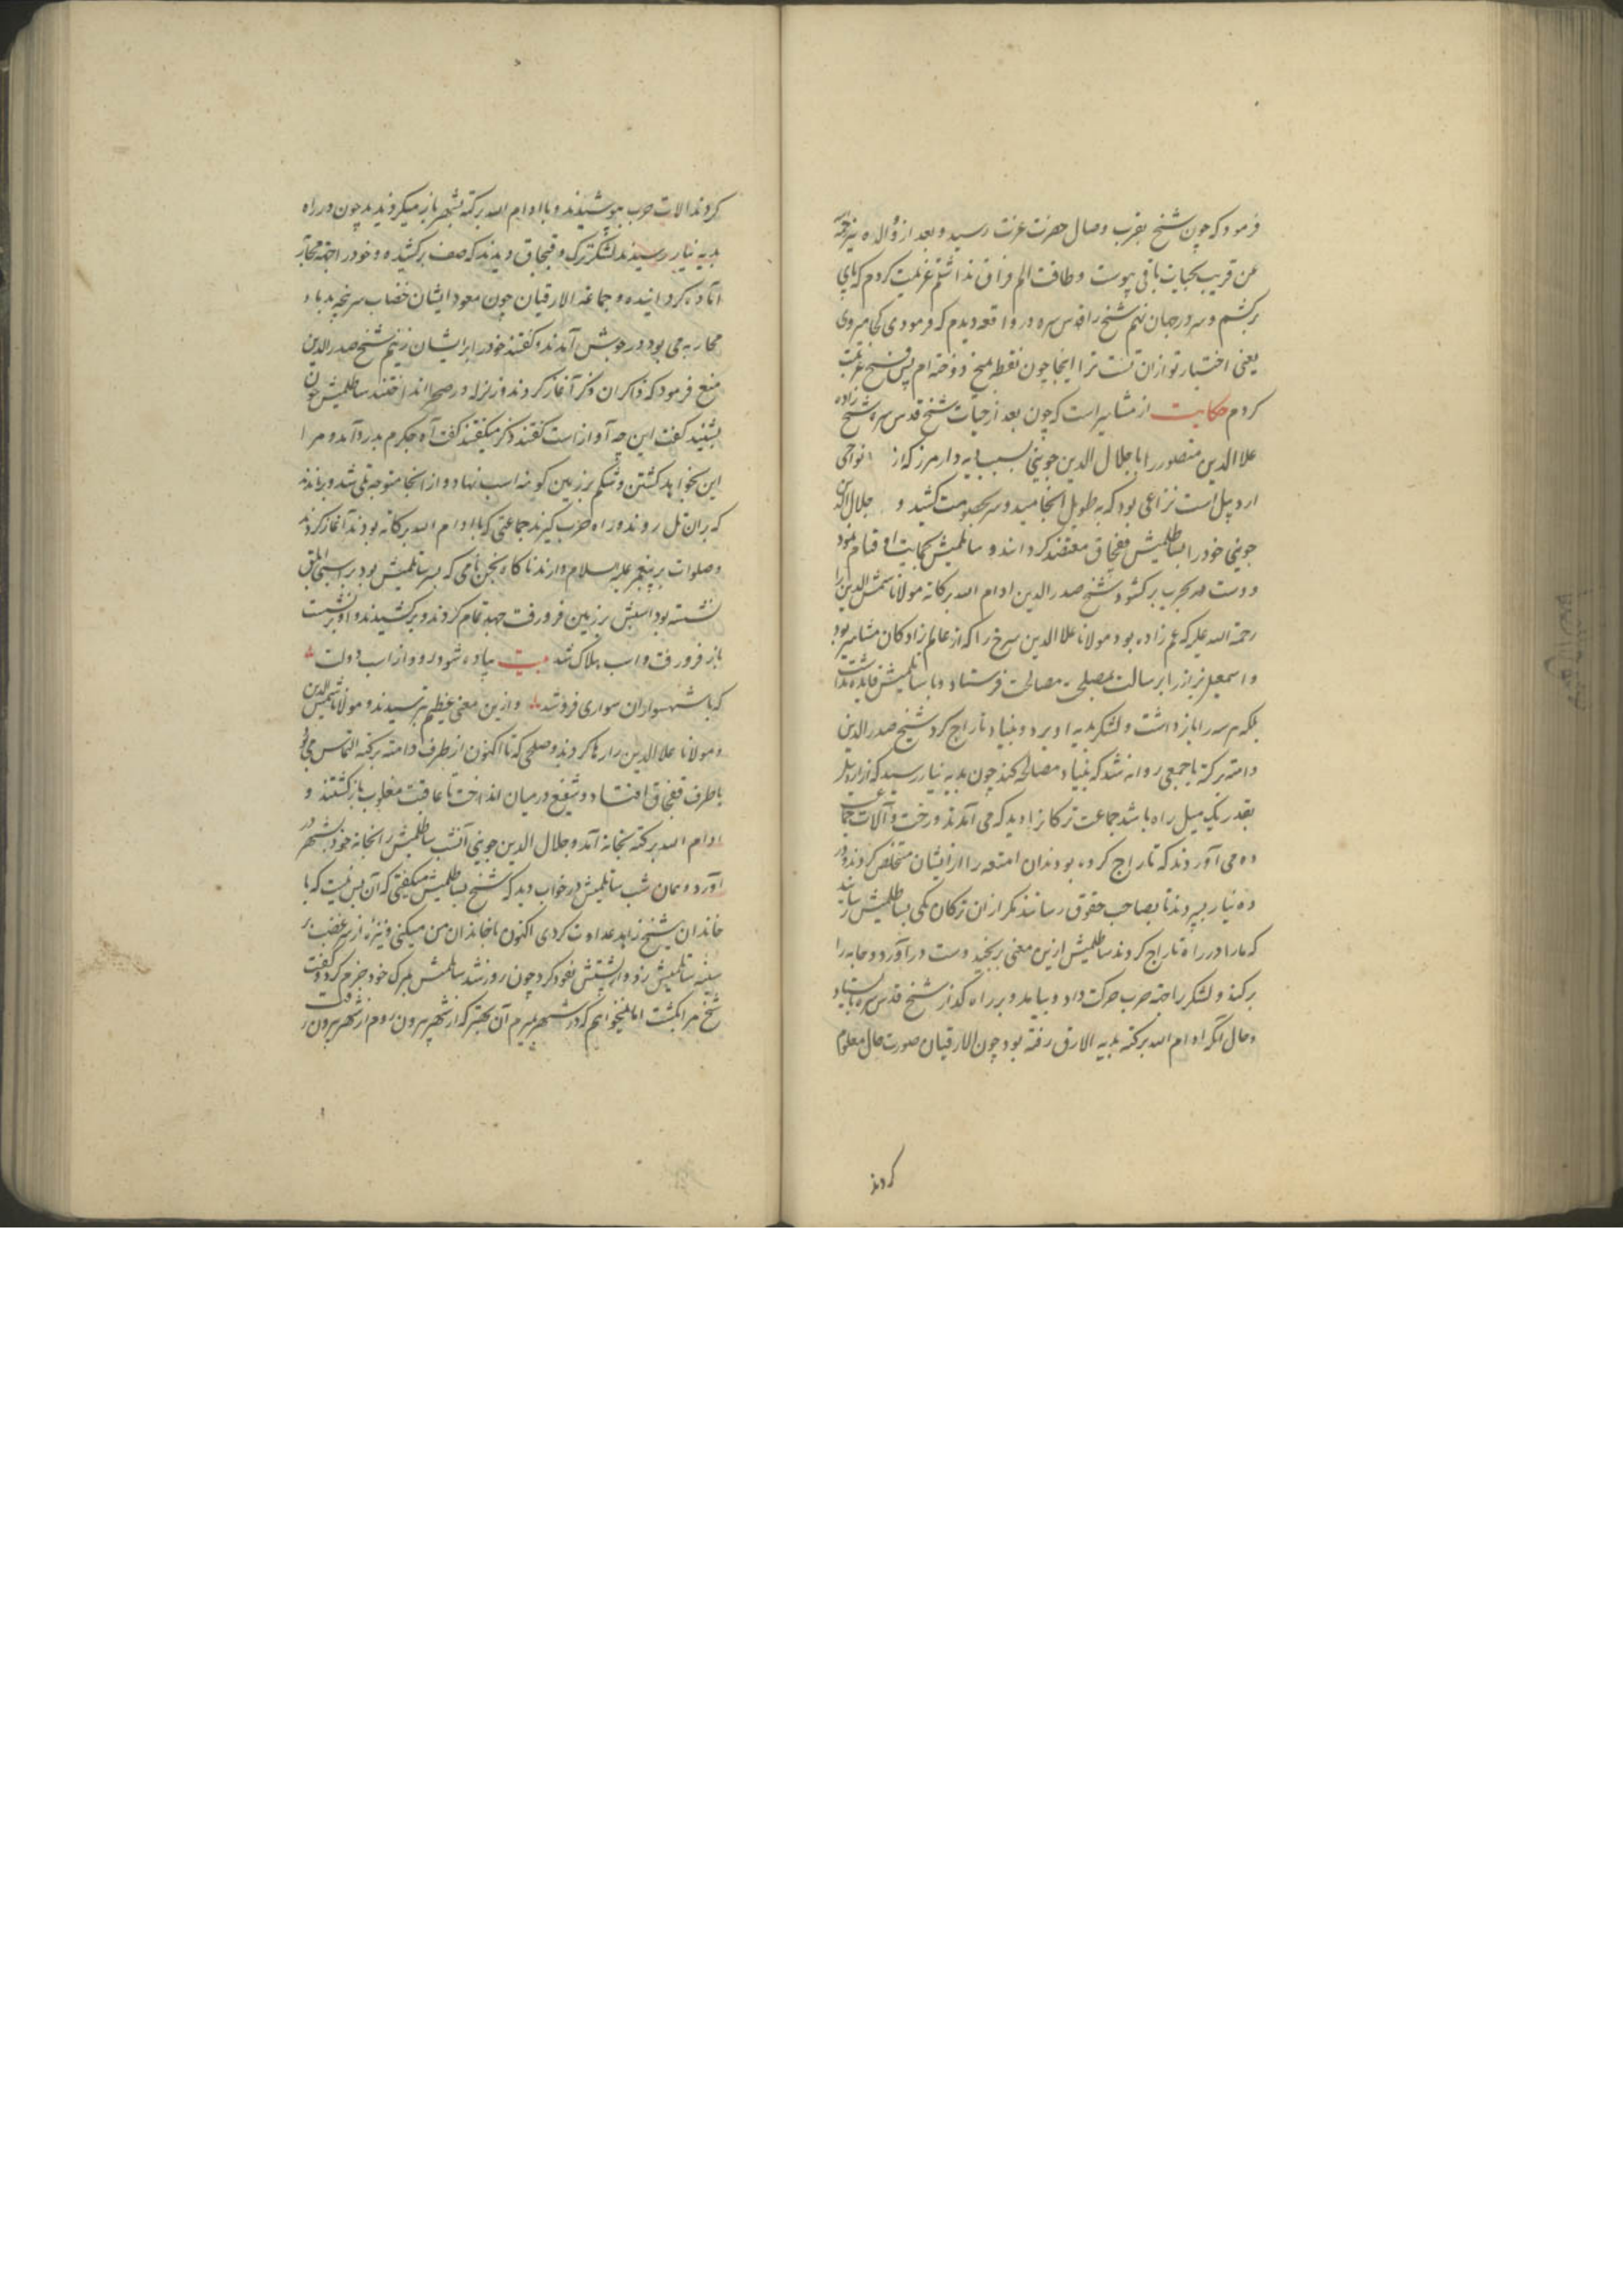 فرمود که چون شیخ بقرب وصال حضرت عزت رسید و بعد از و والده نیز
عن قریب بحیات باقی پیوست و طاقت الم فراق نداشتم عزیمت کردم که پای
برکشم و سر در جهان نهم شیخ را قدس سره در واقعه دیدم که فرمودی کجا میروی
یعنی اختیار تو از ان تست ترا اینجا چون نقطه بمیخ دوخته ام پس فسخ عزیمت
کردم حکایت از مشاهیر است که چون بعد از حیات شیخ قدس سره شیخ زاده
علاالدین منصور را با جلال الدین جوینی بسبب دارمرز که از نواحی
اردبیل است نزاعی بود که به طویل انجامید و سر بخصومت کشید و جلال الدین
جوینی خود را بساطلمیش قفجاق معتضد کردانید و ساتلمیش بحمایت او قیام نمود
و دست بحرب برکشود شیخ صدر الدین ادام الله برکاته مولانا شمس الدین را
رحمة الله علیه که عم زاده بود و مولانا علا الدین سرخ را که از عالم زادکان مشاهیر بود
و اسمعیل را برسالت بمصلحت مصالحت فرستاد و با ساتلمیش فایده نداشت
بلکه هر سه را بازداشت و لشکر بدیه او برد و بنیاد تاراج کرد شیخ صدر الدین
دامته برکته با جمعی روانه شد که بنیاد مصالحه کند چون بدیه نیار رسید که از اردبیل
بقدر یک میل راه باشد جماعت ترکانرا دید که می آمدند و رخت و آلات جماعت
ده می آوردند که تاراج کرده بودند ان امتعه را از ایشان متخلص کردند و در
ده نیار بسپردند تا بصاحب حقوق رسانند مکر از ان ترکان یکی بساطلمیش رسانید
که ما را در راه تاراج کردند ساطلمیش ازین معنی برنجید دست درآورد و جامه را
برکند و لشکر را جهة حرب حرکت داد و بیامد و بر راه گذار شیخ قدس سره بایستاد
و حال آنکه ادام الله برکته بدیه الارق رفته بود چون الارقیان صورت حال معلوم
کردند
کردند الات حرب بپوشیدند و با ادام الله برکته بشهر باز میکردیدند چون در راه
بدیه نیار رسیدند لشکر ترک و قبجاق دیدند که صف برکشیده و خود را جهة محاربه
آماده کردانیده و جماعة الارقیان چون معهود ایشان خضاب سرپنجه بدماء
محاربه می بود در جوش آمدند و کفتند خود را بر ایشان زنیم شیخ صدر الدین
منع فرمود که ذاکران ذکر آغاز کردند و زلزله در صحرا انداختند ساطلمیش چون
بشنید کفت این چه آواز است کفتند ذکر میکفتند کفت آه جکرم بدرد آمد و مرا
این بخواهد کشتن و شکم بر زین کوهه اسب نهاد و از انجا متوجه تلی شد و براندند
که بران تل روند و راه حرب کیرند جماعتی که با ادام الله برکاته بودند آغاز کردند
و صلوات بر پیغمبر علیه السلام دادند ناکاه نامی که پسر ساتلمیش بود بر اسبی ابلق
نشسته بود اسبش بر زمین فرو رفت جهد تمام کردند و برکشیدند و او برنشست
باز فرو رفت و اسب هلاک شد بیت پیاده شود رود از اسب دولت
که با شهسواران سواری فروشد و ازین معنی عظیم بترسیدند و مولانا شمس الدین
و مولانا علا الدین را رها کردند و صلحی که تا اکنون از طرف دامته برکته التماس می بود
با طرف قفجاق افتاد و شفیع در میان انداخت تا عاقبت مغلوب بازکشتند و
ادام الله برکته بخانه آمد و جلال الدین جوینی آنشب ساطلمیش را بخانه خود در شهر
آورد و همان شب ساتلمیش در خواب دید که شیخ بساطلمیش میکفتی که آن بس نیست که با
خاندان شیخ زاهد عداوت کردی اکنون با خاندان من میکنی و نیزهٔ از سر غضب بر
سینه ساتلمیش زد و از پشتش نفوذ کرد چون روز شد ساتلمیش بمرک خود جزم کرد و کفت
شیخ مرا بکشت اما نمیخواهم که در شهر بمیرم آن بهتر که از شهر بیرون روم از شهر بیرون رفت